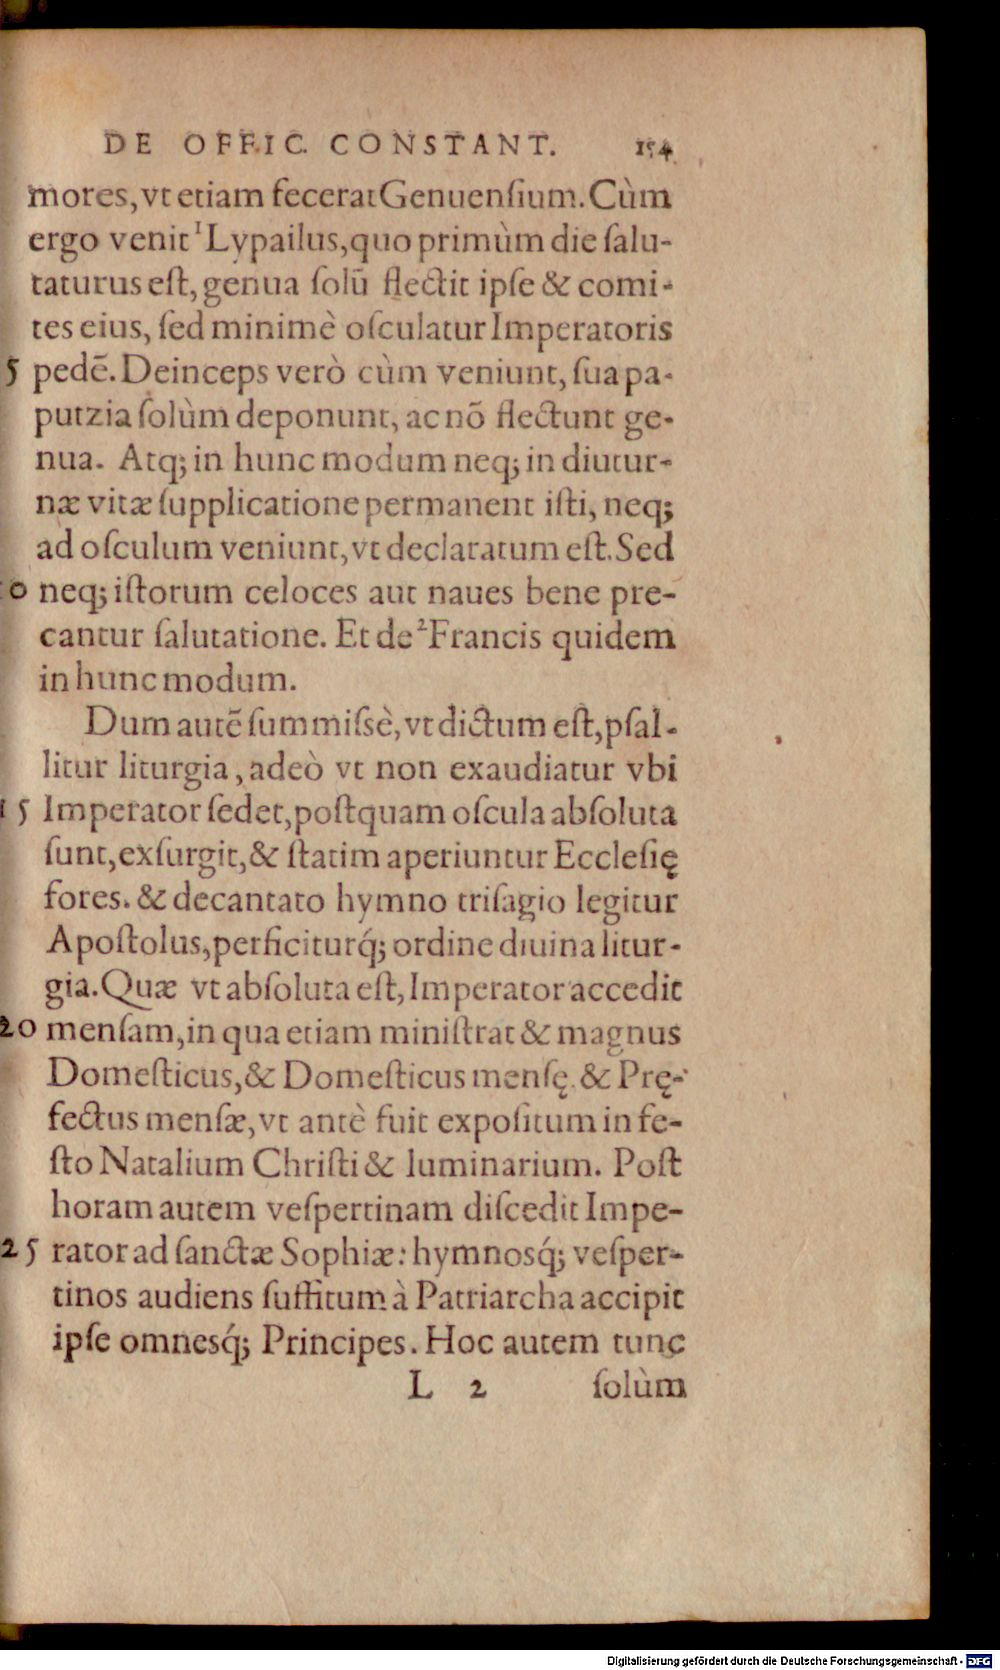 DE OFFIC. CONSTANT. 154
mores, vt etiam fecerat Genuenſium. Cùm
ergo venit ¹Lypailus, quo primùm die ſalu-
taturus eſt, genua ſolū flectit ipſe & comi-
tes eius, ſed minimè oſculatur Imperatoris
5 pedē. Deinceps verò cùm veniunt, ſua pa-
putzia ſolùm deponunt, ac nō flectunt ge-
nua. Atq; in hunc modum neq; in diutur-
næ vitæ ſupplicatione permanent iſti, neq;
ad oſculum veniunt, vt declaratum eſt. Sed
10 neq; iſtorum celoces aut naues bene pre-
cantur ſalutatione. Et de ²Francis quidem
in hunc modum.
Dum autē ſummiſsè, vt dictum eſt, pſal-
litur liturgia, adeò vt non exaudiatur vbi
15 Imperator ſedet, poſtquam oſcula abſoluta
ſunt, exſurgit, & ſtatim aperiuntur Eccleſię
fores. & decantato hymno triſagio legitur
Apoſtolus, perficiturq́; ordine diuina litur-
gia. Quæ vt abſoluta eſt, Imperator accedit
20 menſam, in qua etiam miniſtrat & magnus
Domeſticus, & Domeſticus menſę. & Prę-
fectus menſæ, vt antè fuit expoſitum in fe-
ſto Natalium Chriſti & luminarium. Poſt
horam autem veſpertinam diſcedit Impe-
25 rator ad ſanctæ Sophiæ: hymnosq́; veſper-
tinos audiens ſuffitum à Patriarcha accipit
ipſe omnesq́; Principes. Hoc autem tunc
L 2 ſolùm
Digitalisierung gefördert durch die Deutsche Forschungsgemeinschaft - DFG